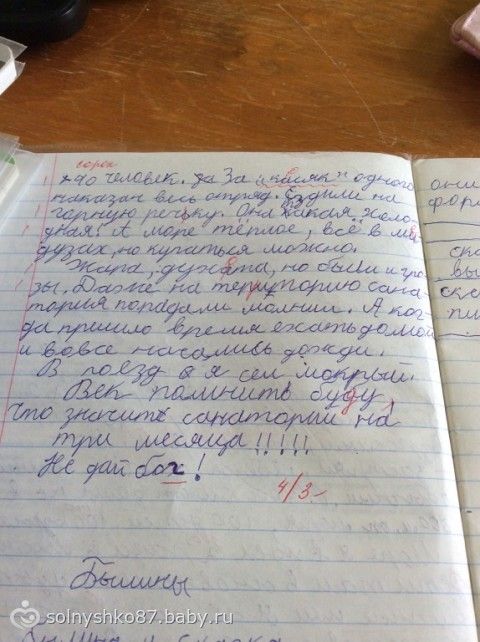 сорок
40 человек. За за "касяк" одного
наказан весь отряд. Ездили на
горную речьку. Она какая холо-
дная! А море тёплое, всё в ме-
дузах, но купаться можно.
Жара, духота, но были и гро-
зы. Даже на територию сана-
тория попадали молнии. А ког-
да пришло время ехать домой
и вовсе начались дожди.
В поезд я сел мокрый.
Век помнить буду,
что значить санаторий на
три месяца!!!!!
Не дай бог!
4/3-
Былины
они
фор
ска
вы
ске
пи
solnyshko87.baby.ru